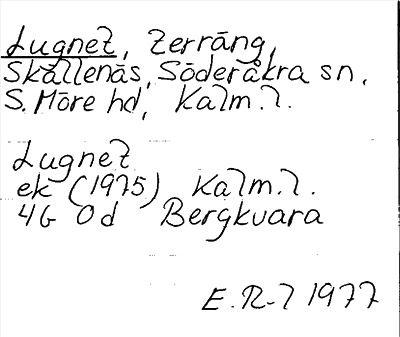 Lugnet, Terräng,
Skällenäs, Söderåkra sn.
S. Möre hd, Kalm.l.
Lugnet
ek (1975) Kalm.l.
4G 0d Bergkvara
E.R-l 1977